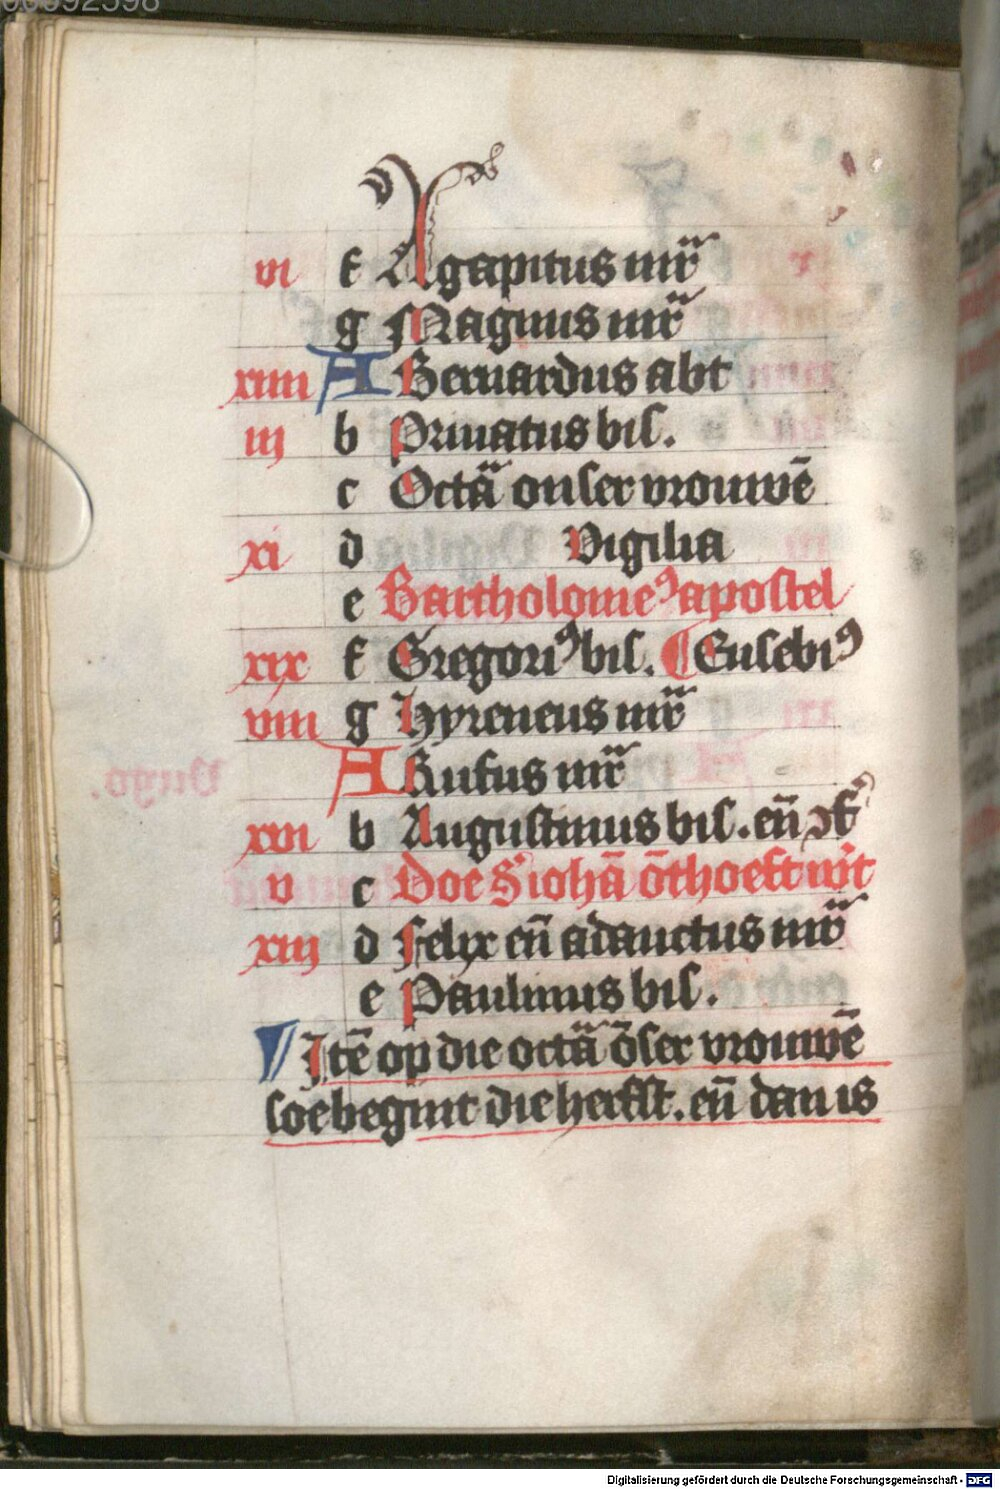 00092598
vi f Agapitus mr̃
g Magnus mr̃
xiiii A Bernardus abt
iij b Priuatus bis.
c Octã onser vrouwẽ
xi d Vigilia
e Bartholomeꝰ apostel
xix f Gregoriꝰ bis. ¶ Eusebiꝰ
viii g Hyreneus mr̃
A Rufus mr̃
xvi b Augustinus bis. eñ
v c Doe S iohã õthoeft wt
xiij d Felix eñ adauctus mr̃
e Paulinus bis.
Itẽ op die octã õser vrouwẽ
soe begint die herfst. eñ dan is
Digitalisierung gefördert durch die Deutsche Forschungsgemeinschaft - DFG